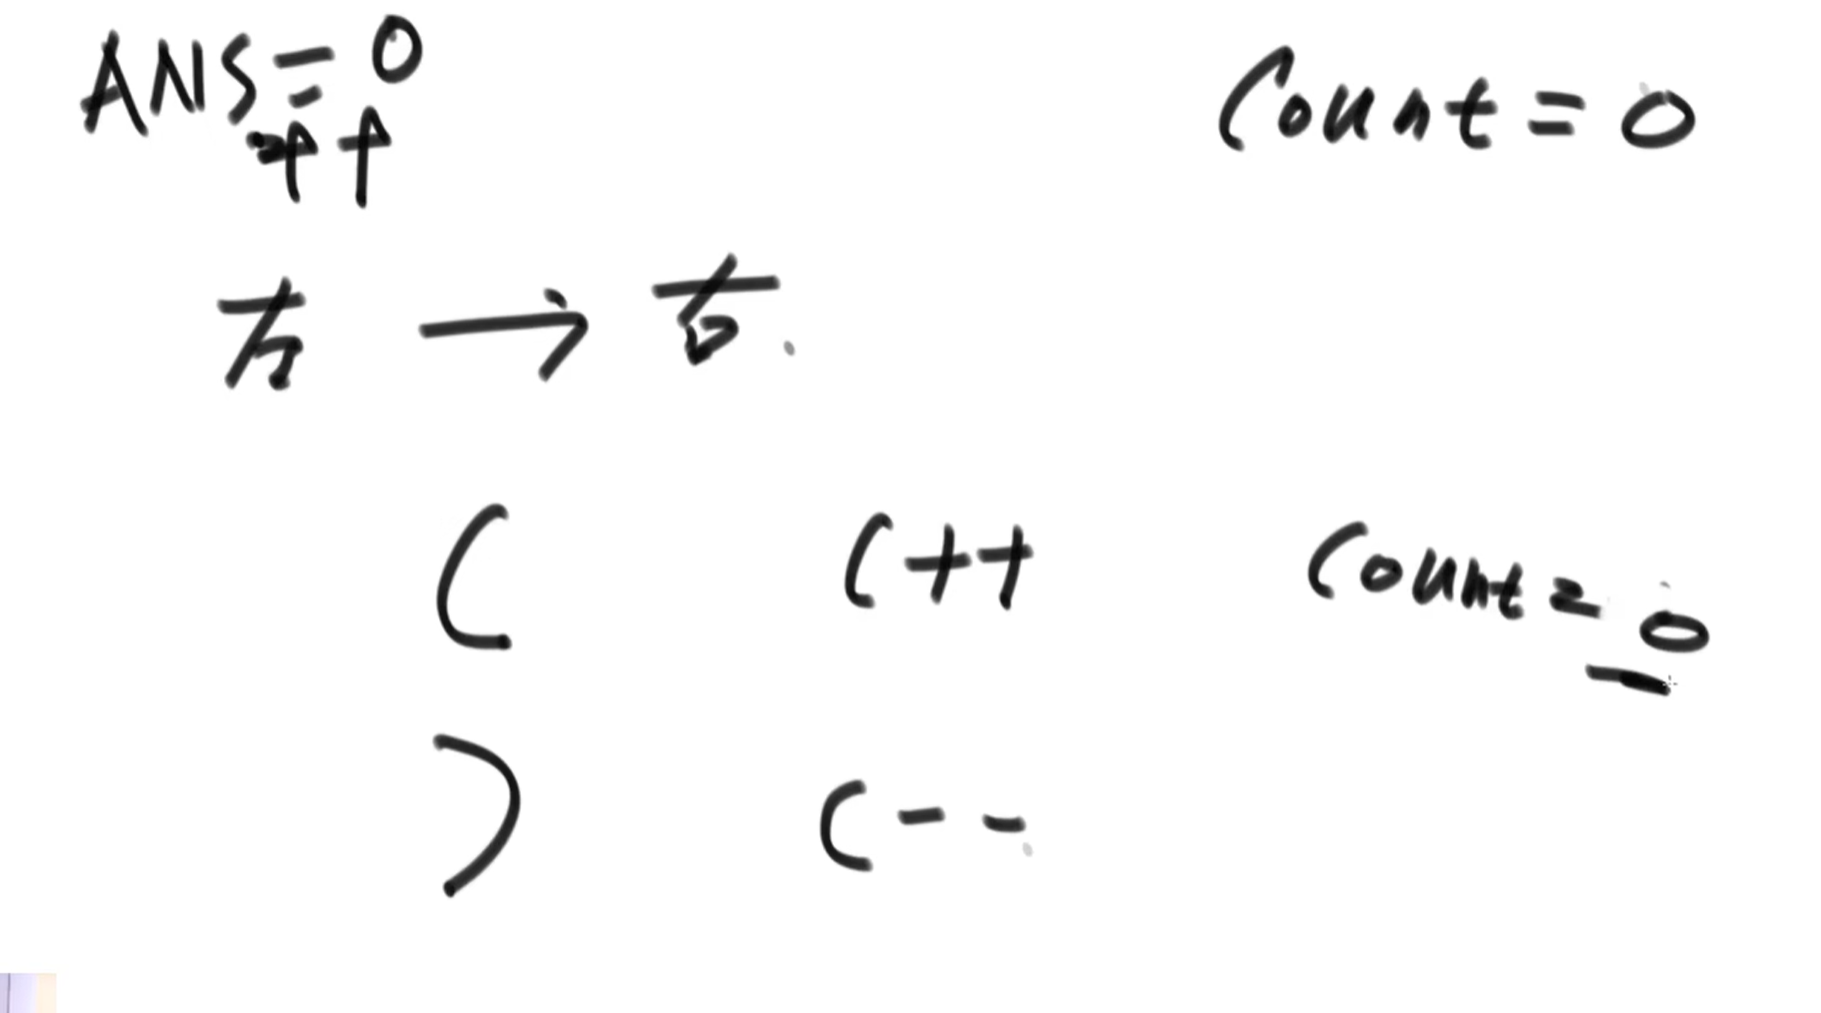 ANS=0
++
Count=0
左 → 右
( C++ Count=0
) C--